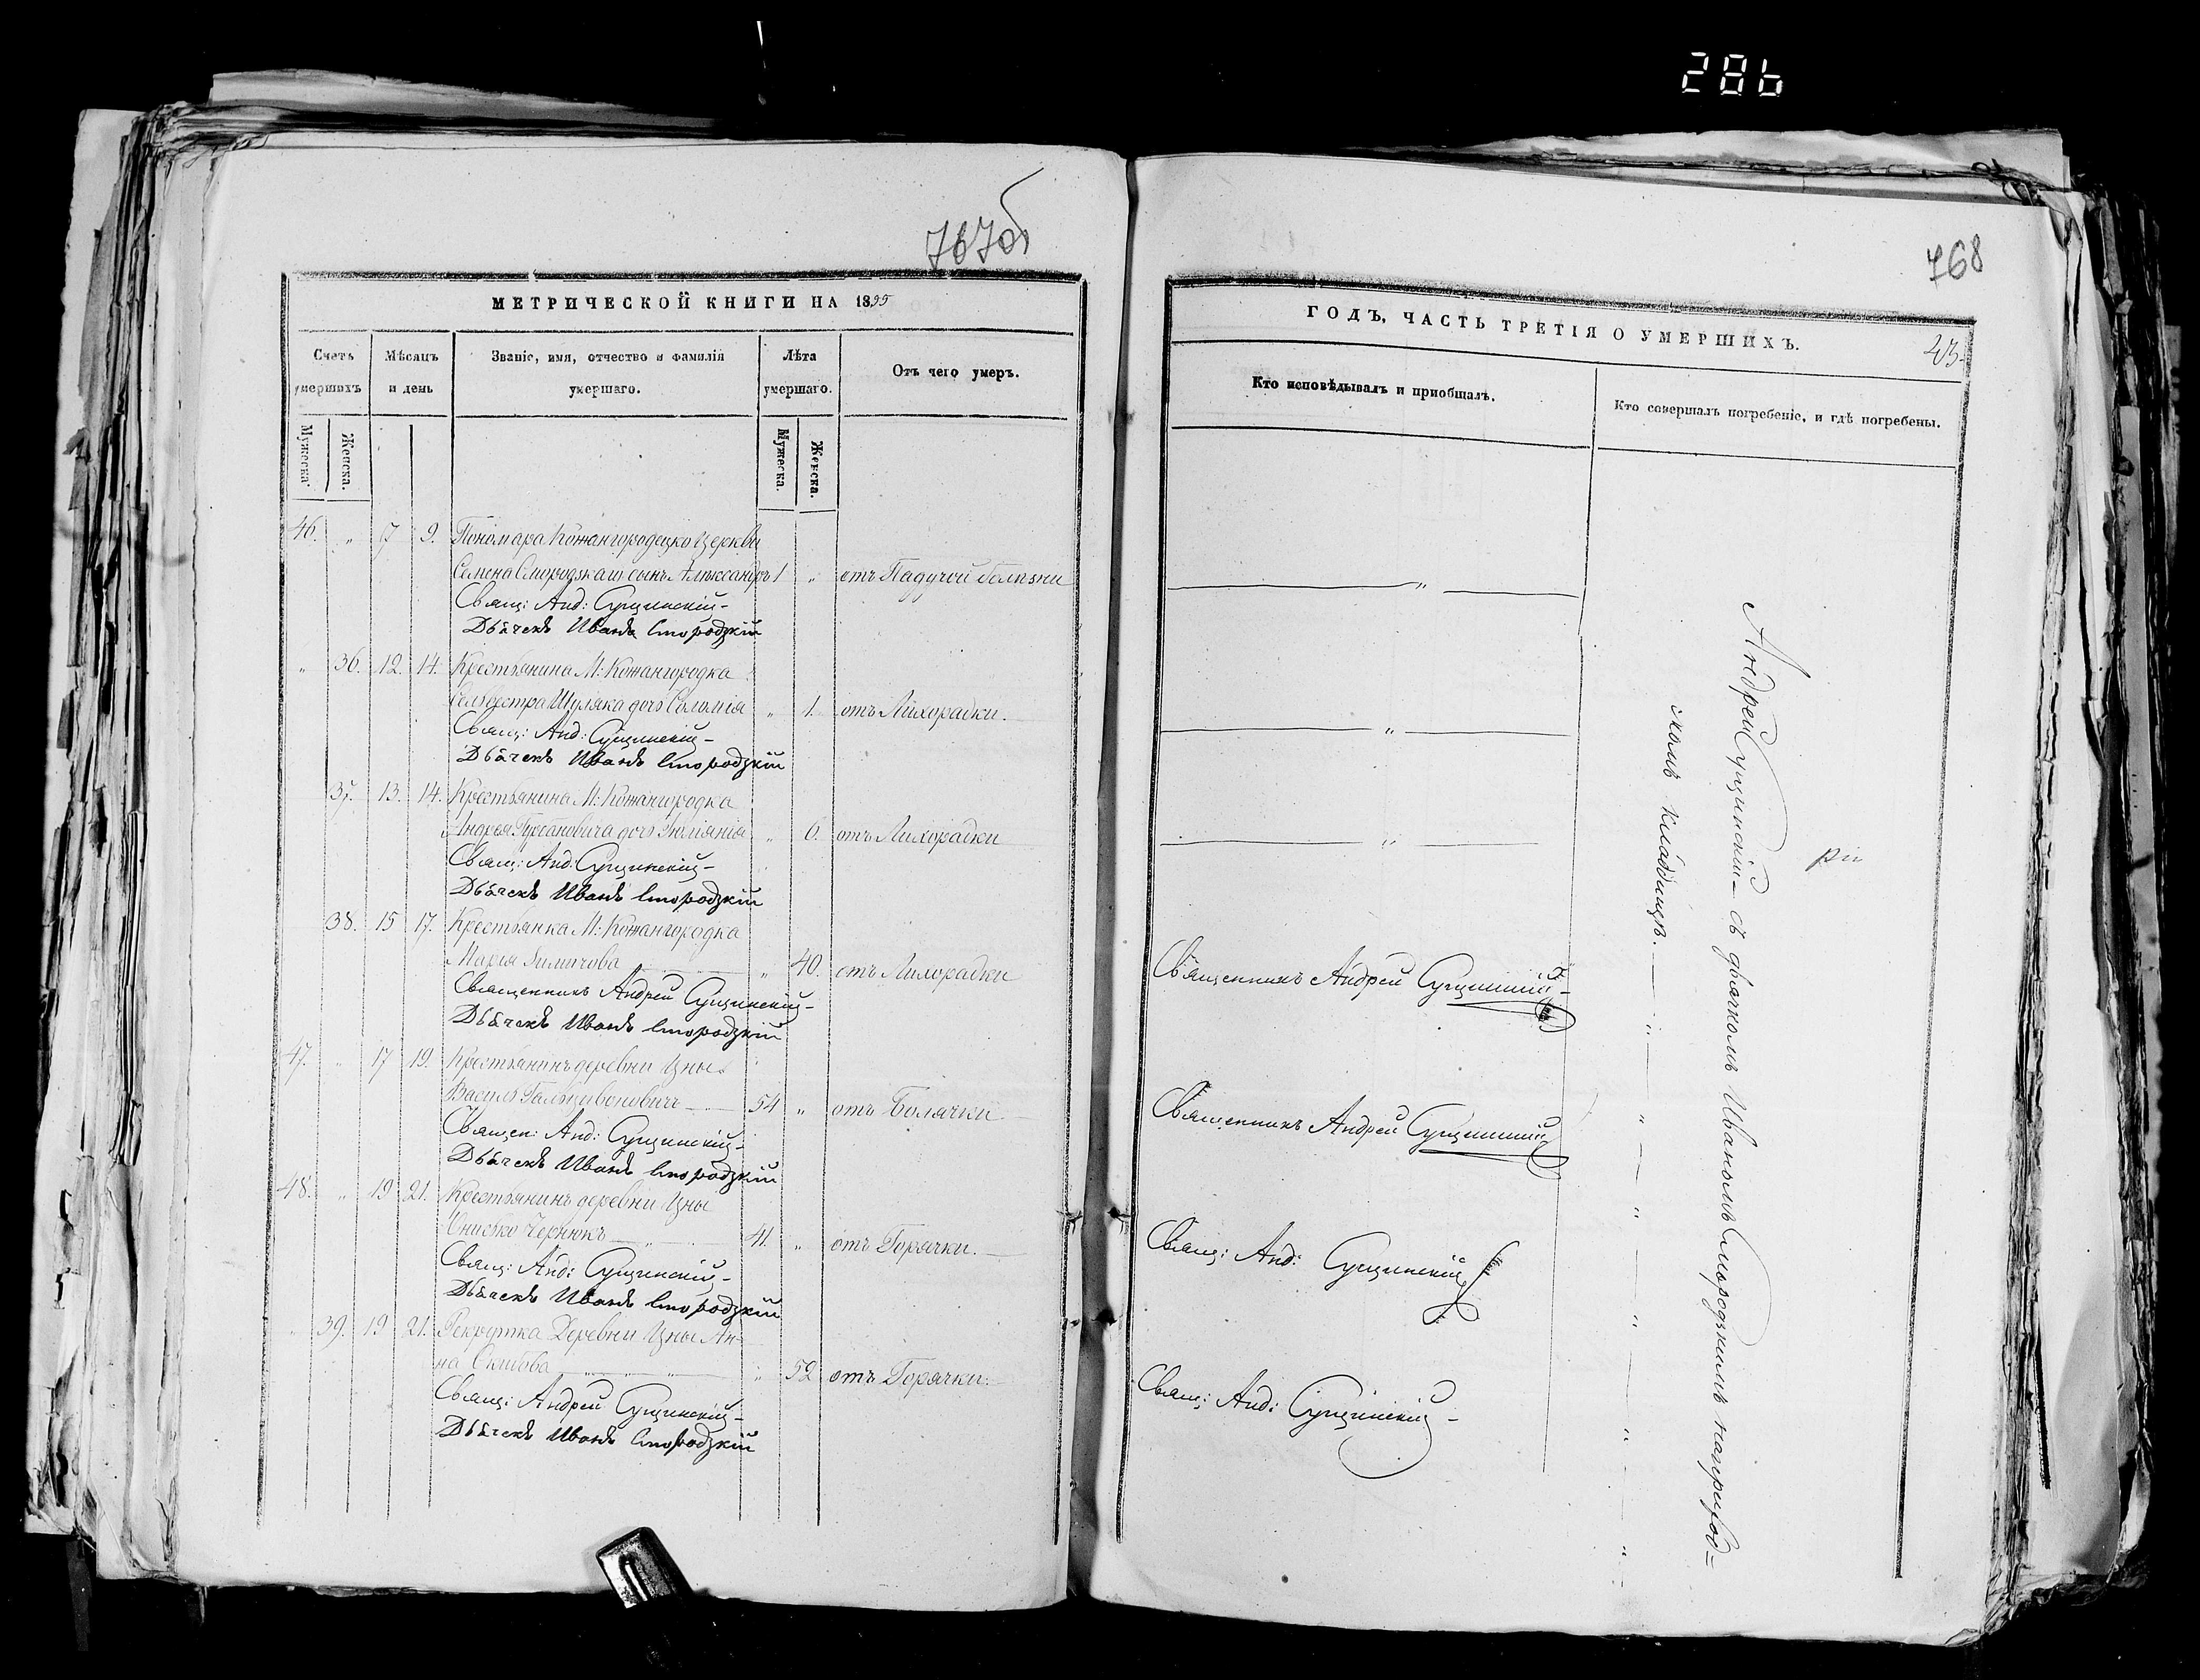 286
767об
МЕТРИЧЕСКОЙ КНИГИ НА 1835
Счетъ умершихъ
Мѣсяцъ и день
Званіе, имя, отчество и фамилія умершаго.
Лѣта умершаго.
Отъ чего умеръ.
Мужеска.
Женска.
Мужеска.
Женска.
46. " 7 9. Пономара Кожангородецко Церкви
Семена Смородзкаго сынъ Александръ 1 " отъ Падучой болѣзни
Свящ: Анд: Сущинскій-
Дьячекъ Иванъ Смородзкій
" 36. 12. 14. Крестьянина М: Кожангородка
Селвестра Шуляка дочь Соломія " 1. отъ Лихорадки.
Свящ: Анд: Сущинскій-
Дьячекъ Иванъ Смородзкій
37. 13. 14. Крестьянина М: Кожангородка
Андрея дочь " 6. отъ Лихорадки
Свящ: Анд: Сущинскій-
Дьячекъ Иванъ Смородзкій
38. 15 17. Крестьянка М: Кожангородка
Марія " 40. отъ Лихорадки
Священникъ Андрей Сущинскій-
Дьячекъ Иванъ Смородзкій
47. " 17 19. Крестьянинъ деревни Цны
Василь 54 " отъ Болячки
Священ: Анд: Сущинскій-
Дьячекъ Иванъ Смородзкій
48. " 19 21. Крестьянинъ деревни Цны
Онисько Чернюкъ 41. " отъ Горячки.
Свящ: Анд: Сущинскій-
Дьячекъ Иванъ Смородзкій
" 39. 19 21. Рекрутка Деревни Цны Ан-
на " 52 отъ Горячки.
Свящ: Андрей Сущинскій-
Дьячекъ Иванъ Смородзкій
768
ГОДЪ, ЧАСТЬ ТРЕТІЯ О УМЕРШИХЪ.
43.
Кто исповѣдывалъ и приобщалъ.
Кто совершалъ погребеніе, и гдѣ погребены.
Священникъ Андрей Сущинский-
Священникъ Андрей Сущинский
Свящ: Анд: Сущинскій
Свящ: Анд: Сущинскій-
Андрей Сущинскій- съ дьячкомъ Иваномъ Смородзкимъ наприход=
скомъ кладбищѣ.